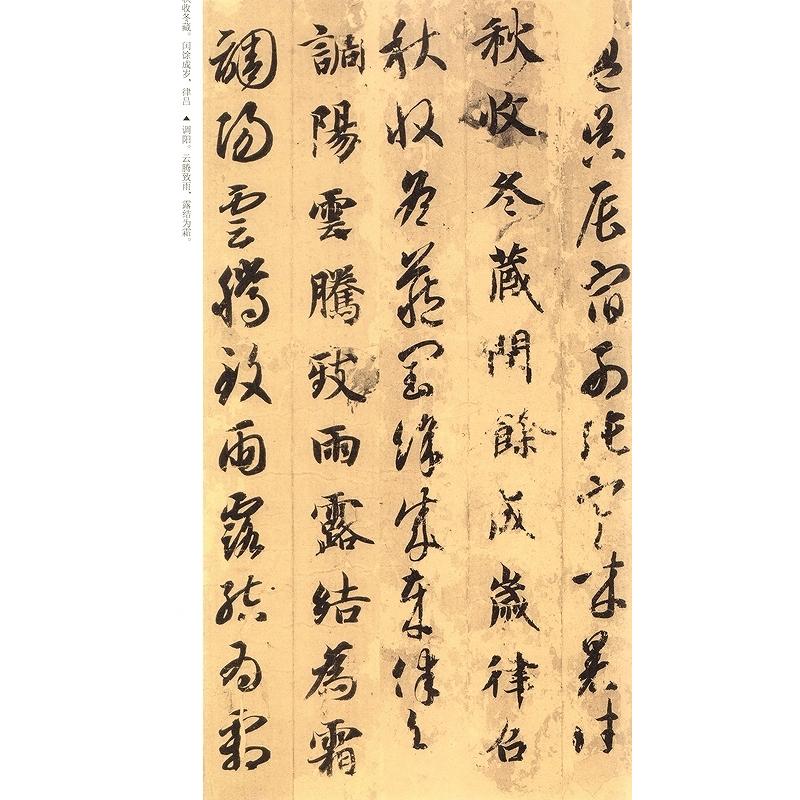 盈昃辰宿列張寒來暑往
秋收冬藏閏餘成歲律召
秋收冬藏閏餘成歲律召
調陽雲騰致雨露結為霜
調陽雲騰致雨露結為霜
收冬藏。闰馀成岁，律吕 ▲ 调阳。云腾致雨，露结为霜。